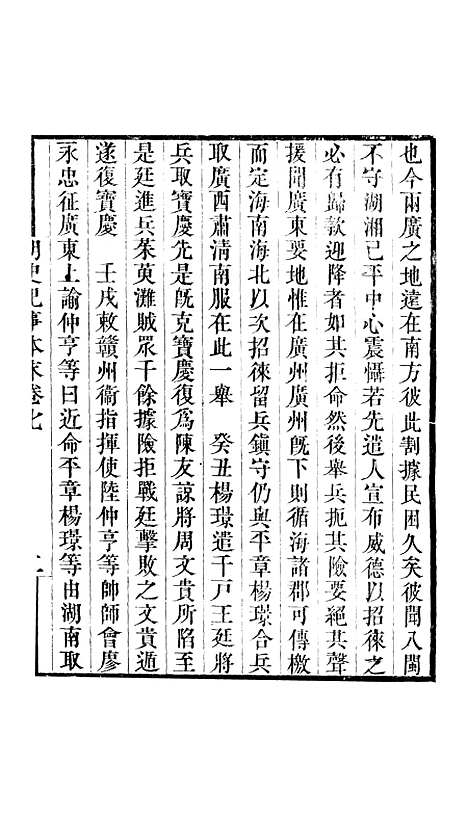 也今兩廣之地遠在南方彼此割據民困久矣彼聞入閩
不守湖湘已平中心震懾若先遣人宣布威德以招徠之
必有歸款迎降者如其拒命然後舉兵扼其險要絕其聲
援聞廣東要地惟在廣州廣州旣下則循海諸郡可傳檄
而定海南海北以次招徠留兵鎭守仍與平章楊璟合兵
取廣西肅清南服在此一舉　癸丑楊璟遣千戸王廷將
兵取寶慶先是旣克寶慶復爲陳友諒將周文貴所陷至
是廷進兵茱萸灘賊眾千餘據險拒戰廷擊敗之文貴遁
遂復寶慶　壬戌敕贛州衞指揮使陸仲亨等帥師會廖
永忠征廣東上諭仲亨等曰近命平章楊璟等由湖南取
明史紀事本末卷七